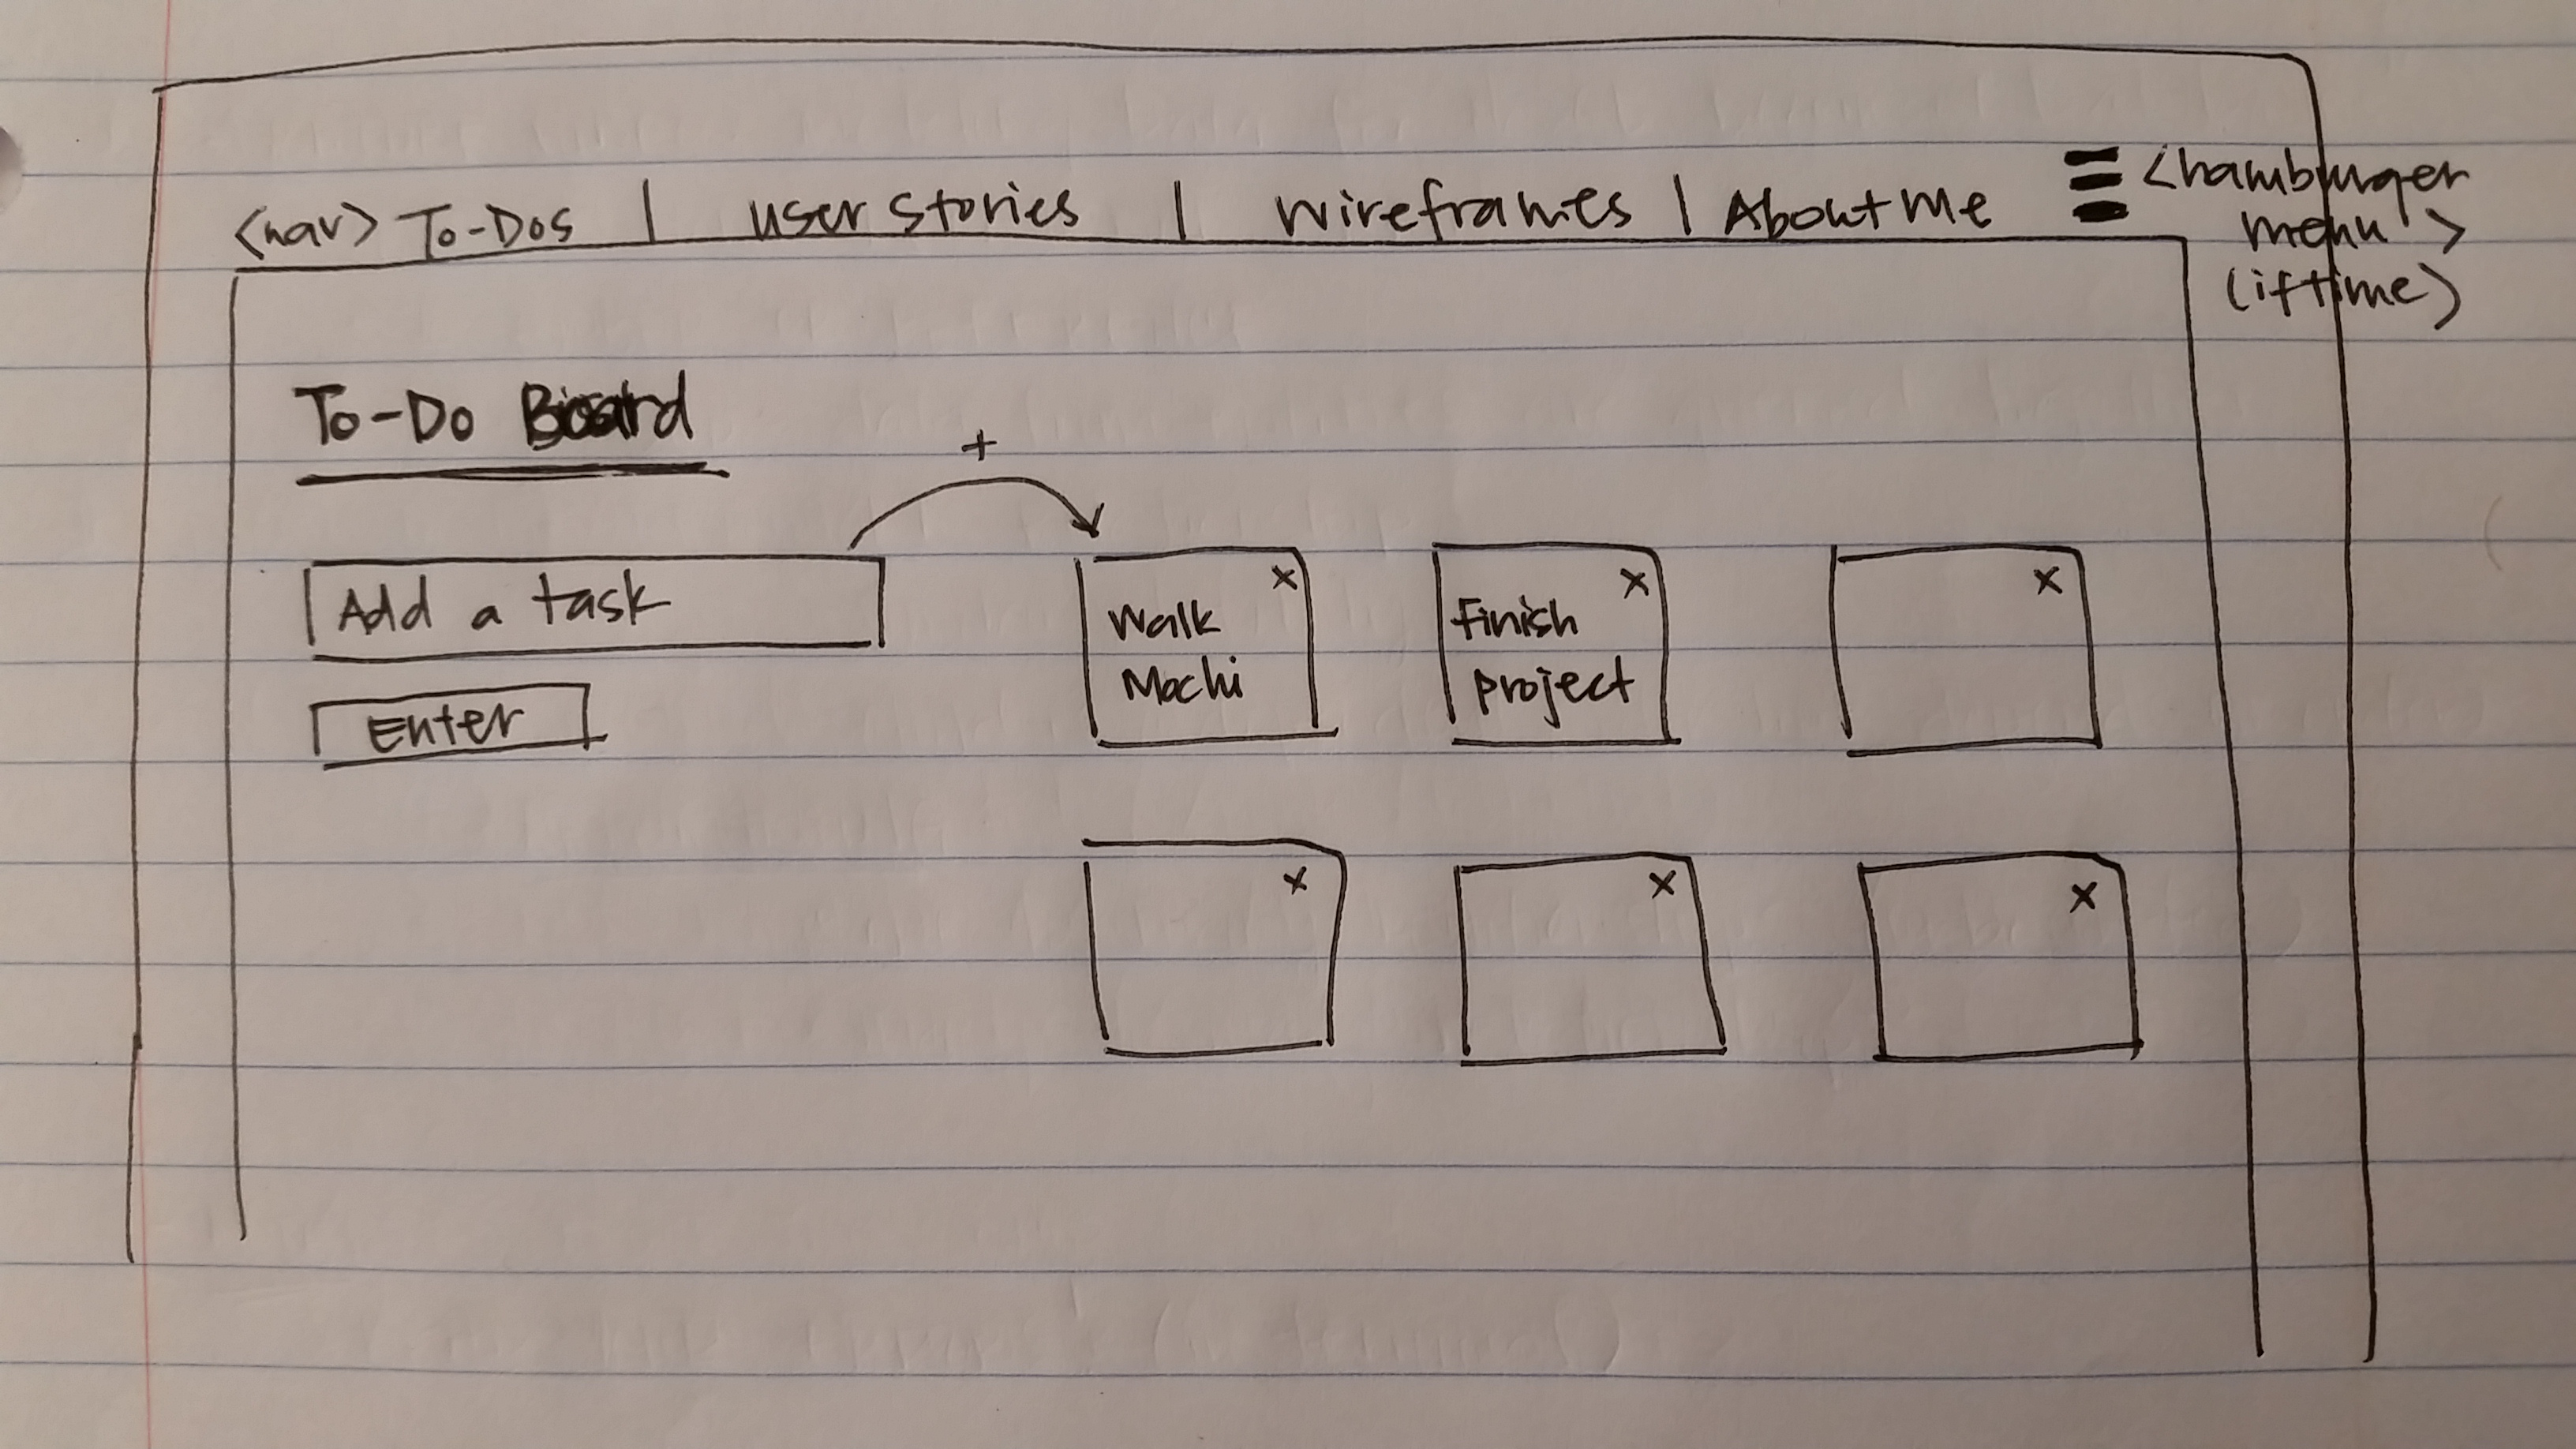 <nav> To-Dos | user stories | wireframes | About me
<hamburger
menu>
(if time)
To-Do Board
+
Add a task
Enter
x
Walk
Mochi
x
Finish
project
x
x
x
x